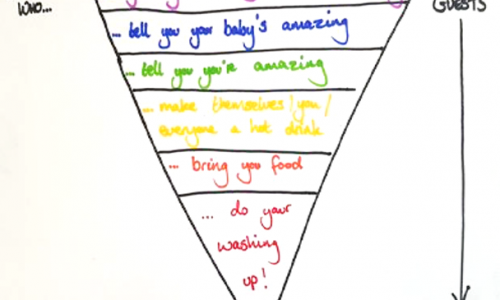 WHO... GUESTS
... tell you your baby's amazing
... tell you you're amazing
... make themselves/you/
everyone a hot drink
... bring you food
... do your
washing
up!